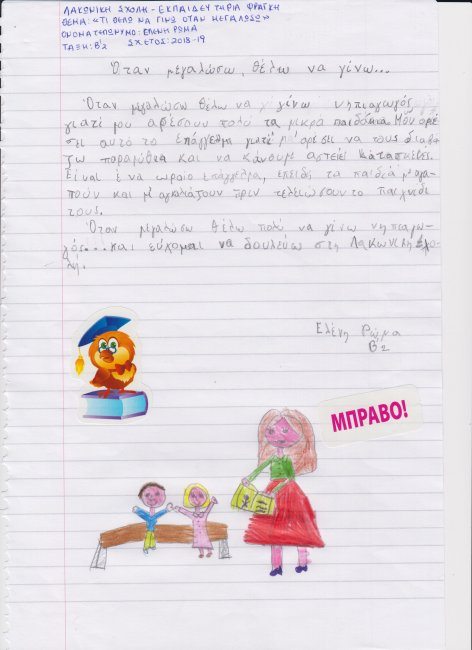 ΛΑΚΩΝΙΚΗ ΣΧΟΛΗ - ΕΚΠΑΙΔΕΥΤΗΡΙΑ ΦΡΑΓΚΗ
ΘΕΜΑ: «ΤΙ ΘΕΛΩ ΝΑ ΓΙΝΩ ΟΤΑΝ ΜΕΓΑΛΩΣΩ»
ΟΝΟΜΑΤΕΠΩΝΥΜΟ: ΕΛΕΝΗ ΡΩΜΑ
ΤΑΞΗ: Β'2 ΣΧ. ΕΤΟΣ: 2018-19
Όταν μεγαλώσω, θέλω να γίνω...
Όταν μεγαλώσω θέλω να γίνω νηπιαγωγός
γιατί μου αρέσουν πολύ τα μικρά παιδάκια. Μου αρέ
σει αυτό το επάγγελμα γιατί μ'αρέσει να τους διαβά
ζω παραμύθια και να κάνουμε αστείες κατασκευές.
Είναι ένα ωραίο επάγγελμα, επειδή τα παιδιά μ'αγα
πούν και μ'αγκαλιάζουν πριν τελειώσουν το παιχνίδι
τους.
Όταν μεγαλώσω θέλω πολύ να γίνω νηπιαγω
γός... και εύχομαι να δουλεύω στη Λακωνική Σχο
λή.
Ελένη Ρώμα
Β2
ΜΠΡΑΒΟ!